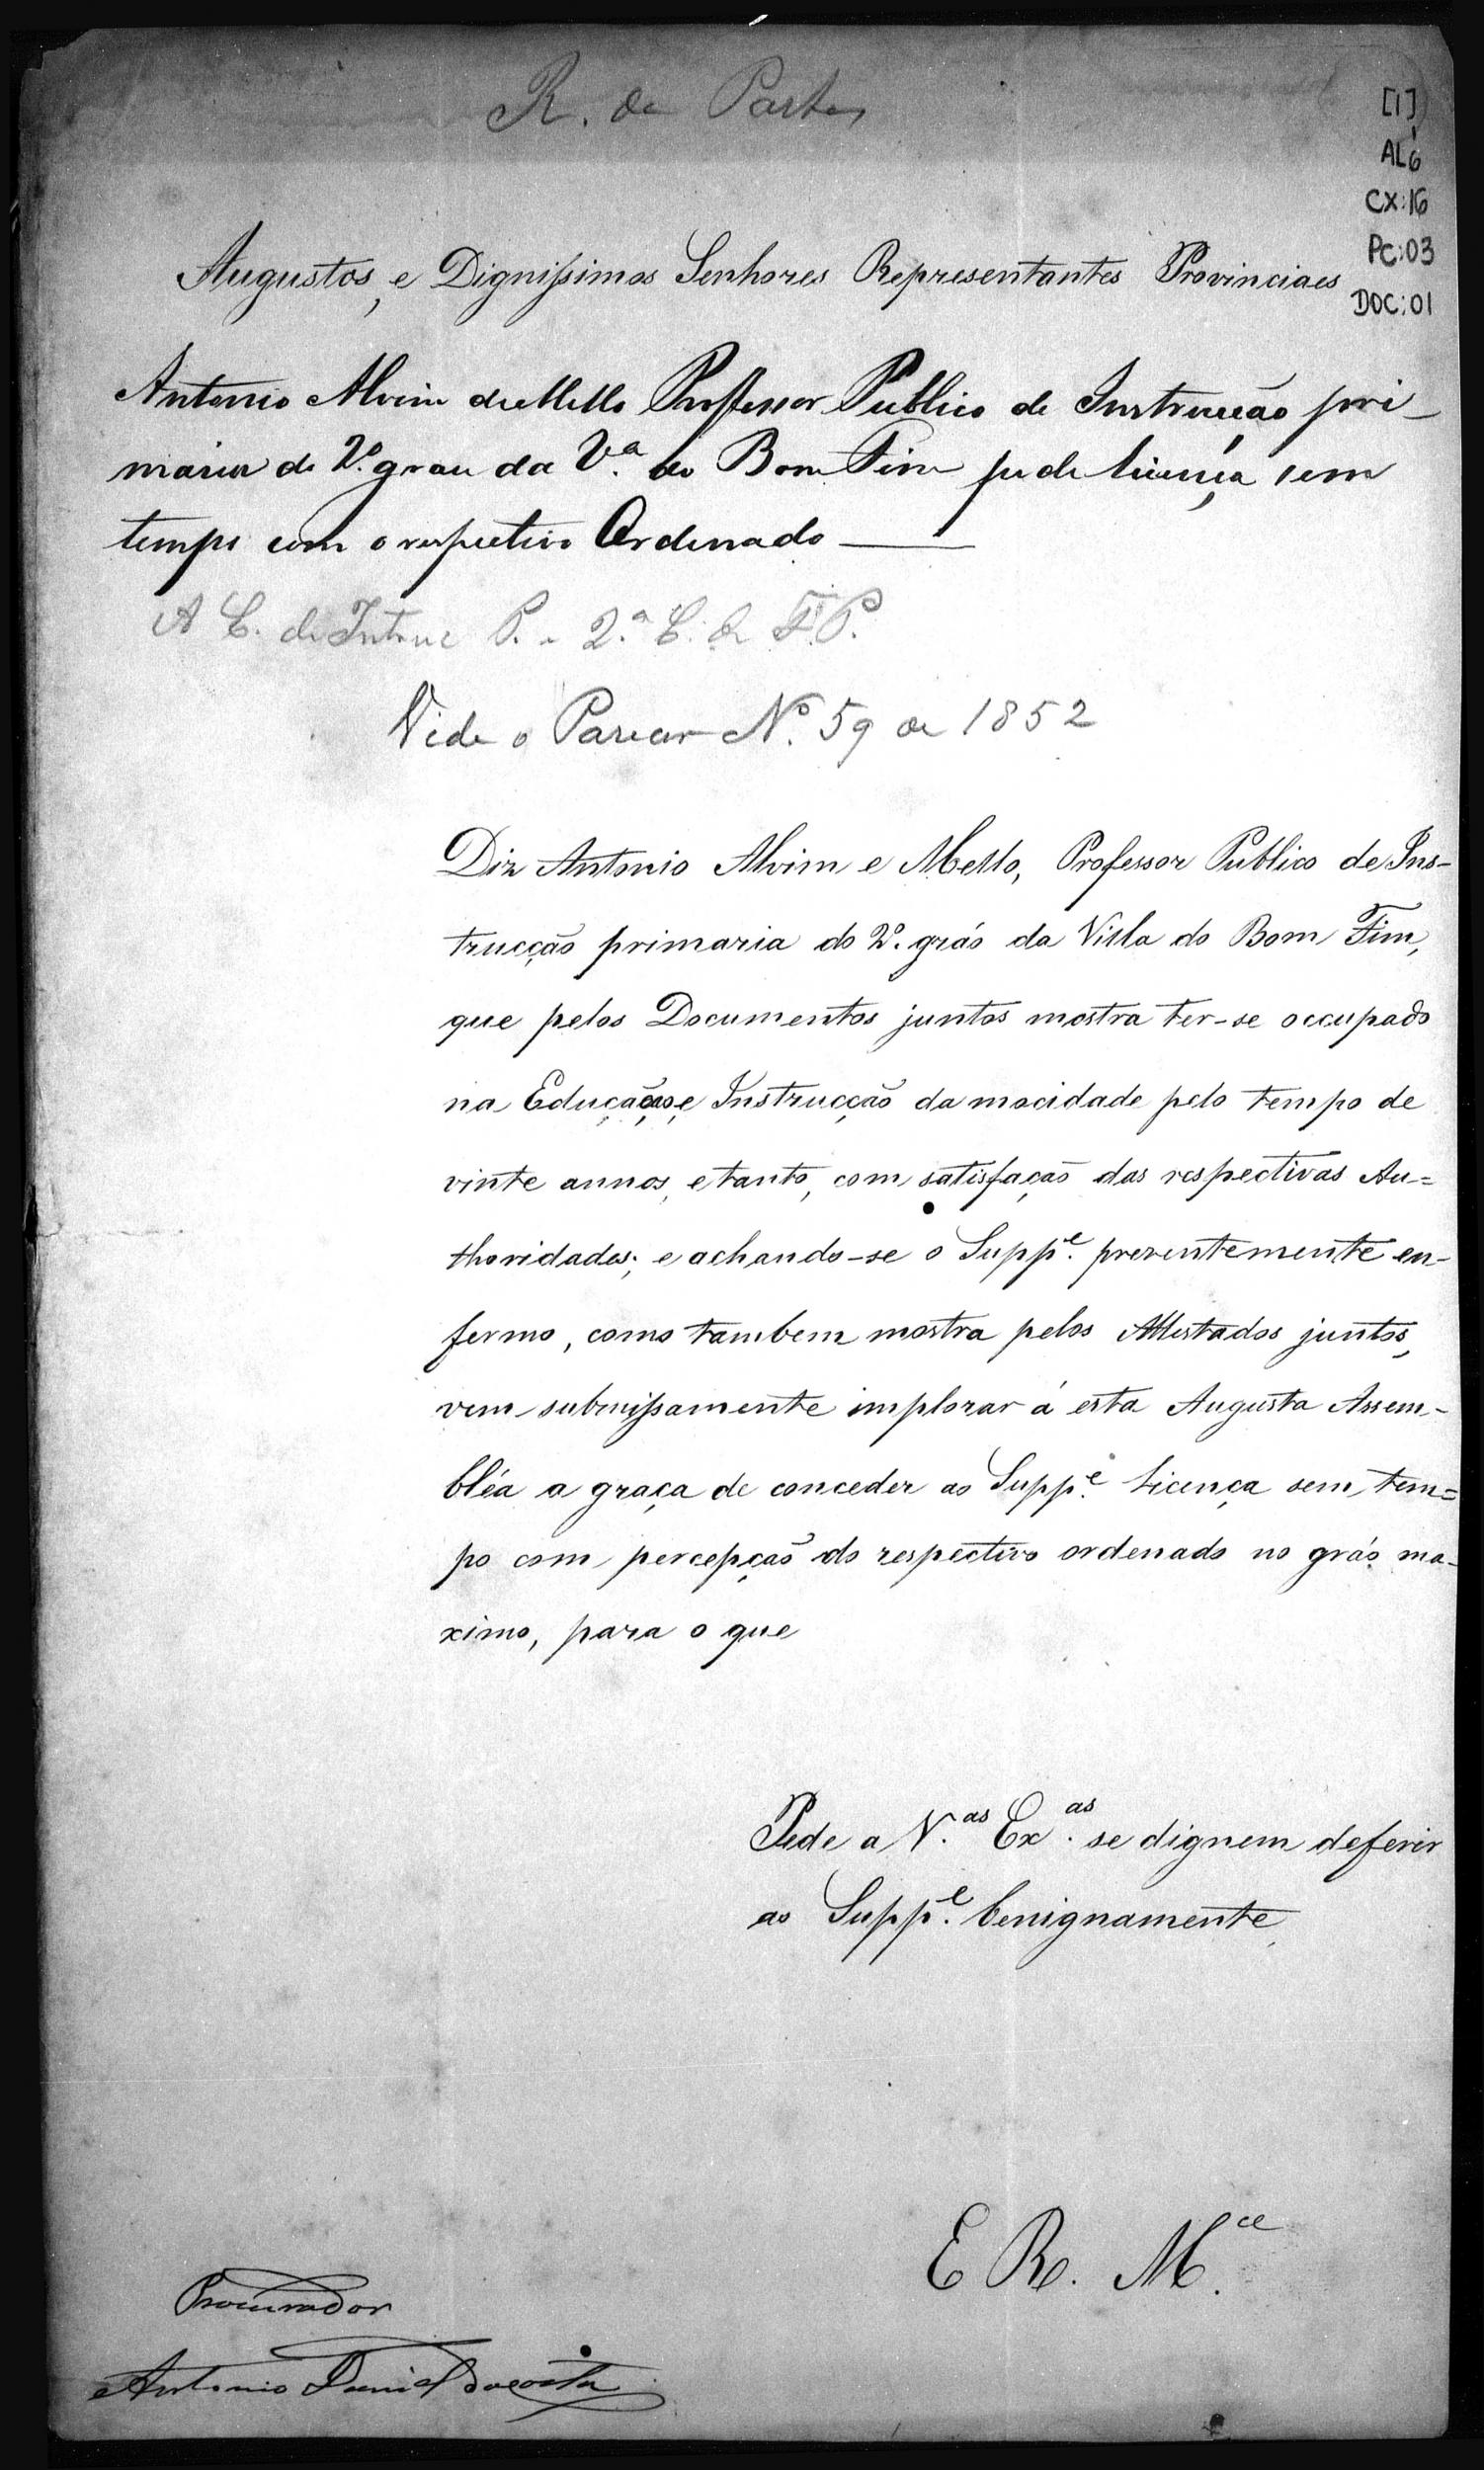 R. de Partes
[1]
AL6
CX:16
PC:03
DOC:01
Augustos, e Dignissimos Senhores Representantes Provinciaes
Antonio Alvim de Mello Professor Publico de Instrucção pri-
maria do 2º grau da Vª do Bom Fim pede licença sem
tempo com o respectivo Ordenado
A C. de Instruc P. 2.ª C. de F.P.
Vide o Parecer Nº 59 de 1852
Diz Antonio Alvim e Mello, Professor Publico de Ins-
trucção primaria do 2º. gráo da Villa do Bom Fim,
que pelos Documentos juntos mostra ter-se occupado
na Educação, e Instrucção da mocidade pelo tempo de
vinte annos, e tanto, com satisfação das respectivas Au=
thoridades; e achando-se o Suppe. prezentemente en-
fermo, como tambem mostra pelos Attestados juntos,
vem submissamente implorar á esta Augusta Assem-
bléa a graça de conceder ao Suppe. licença sem tem=
po com percepção do respectivo ordenado no gráo ma-
ximo, para o que
Pede a V.as Ex.as se dignem deferir
ao Suppe. benignamente
E R. M.ce
Procurador
Antonio Daniel da Costa